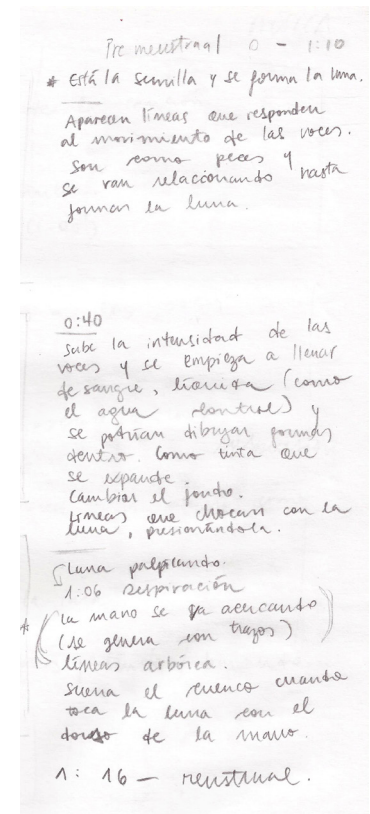 Pre menstrual 0 - 1:10
* Está la semilla y se forma la luna.
Aparecen líneas que responden
al movimiento de las voces.
Son como peces y
se van relaccionando hasta
forman la luna.
0:40
Sube la intensidad de las
voces y se empieza a llenar
de sangre, líquida (como
el agua control) y
se podrían dibujar formas
dentro. Como tinta que
se expande.
Cambiar el fondo.
Líneas que chocan con la
luna, presionándola.
Luna palpitando.
1:06 Respiración
* (la mano se va acercando
(se genera con trazos)
líneas arbórea.
Suena el cuenco cuando
toca la luna con el
dorso de la mano.
1:16 — menstrual.